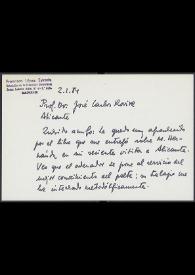 Francisco López Estrada
2.1.84
Prof. Dr. José Carlos Rovira
Alicante
Querido amigo: le quedo muy agradecido
por el libro que me entregó sobre M. Her-
nández, en mi reciente visita a Alicante.
Veo que el ordenador se pone al servicio del
mejor conocimiento del poeta; su trabajo me
ha interesado metodológicamente.